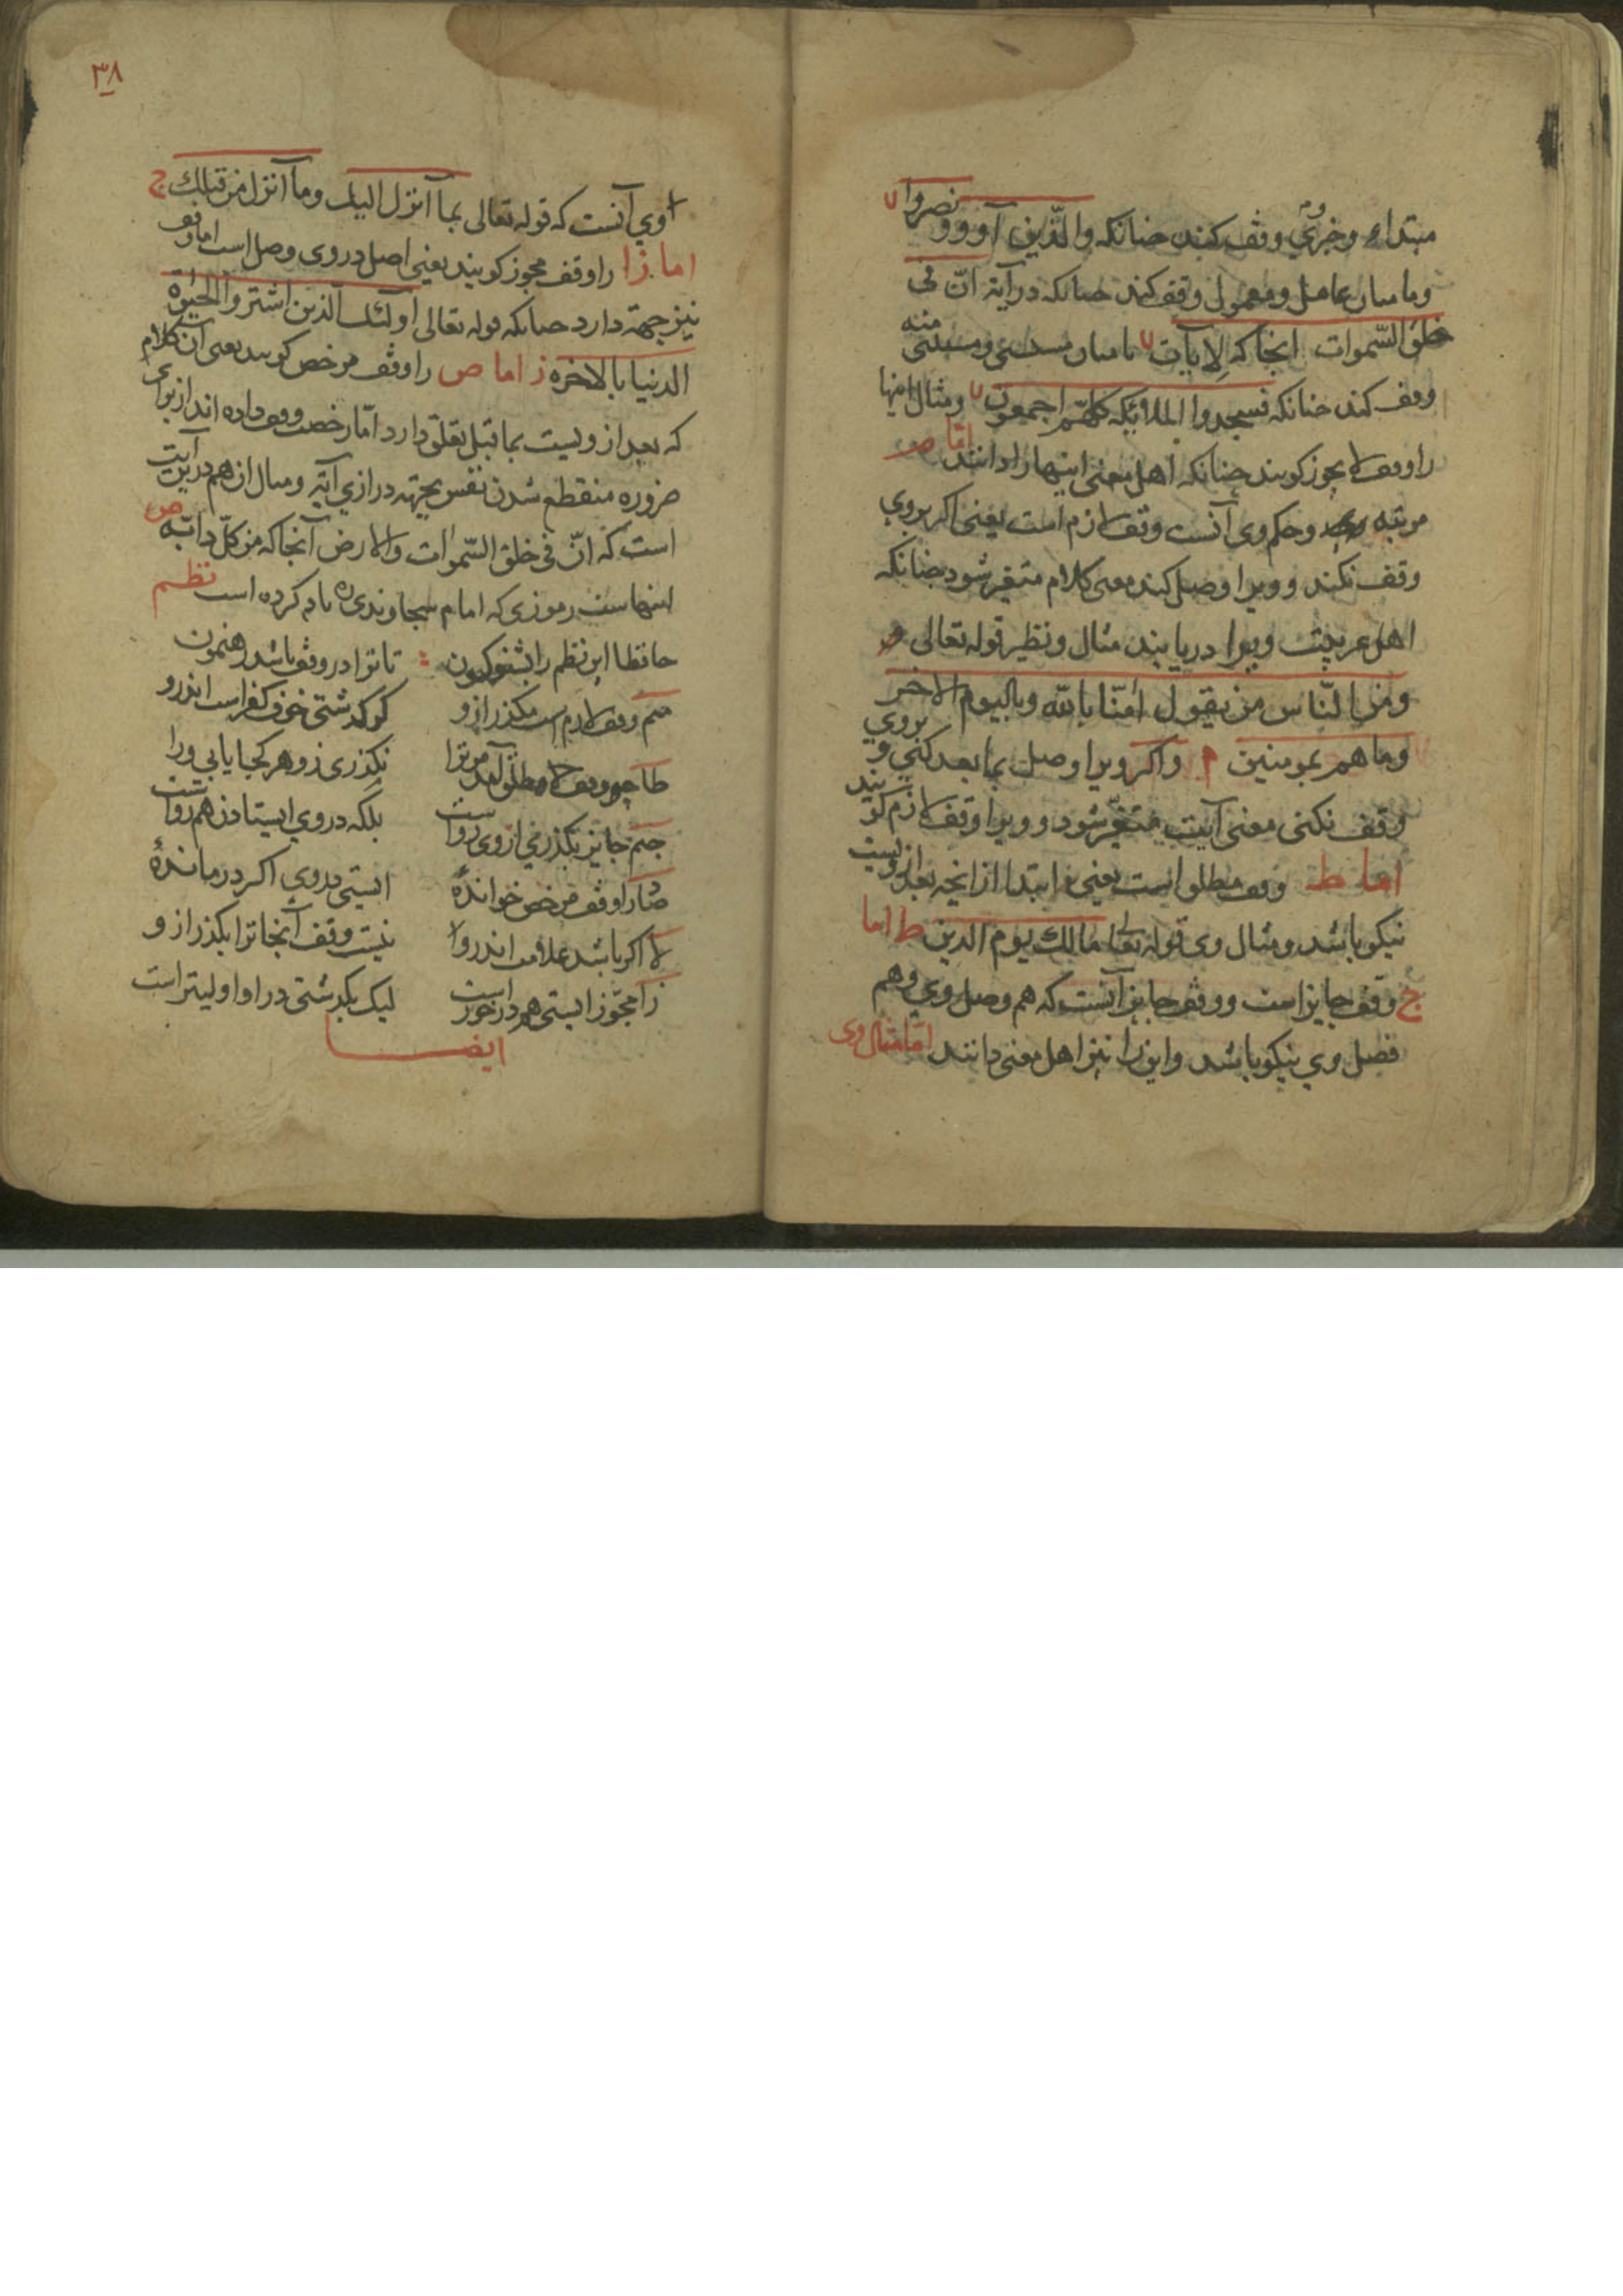 مبتداء وخبری وقف کنند چنانکه والذین آووو ونصروا لا
ویا میان عامل ومعمول وقف کند چنانکه در آیة انّ فی
خلق السّموات انجا که لایات لا یا میان مستثنی ومستثنی منه
وقف کند چنانکه فسجدوا الملائکه کلّهم اجمعون لا ومثال اینها
را وقف لا یجوز کویند چنانکه اهل معنی اینها را دانند امّا م
مرتبه وحکم وی آنست وقف لازم است یعنی اکر بروی
وقف نکند وویرا وصل کند معنی کلام متغیر شود چنانکه
اهل عربیت ویرا دریابند مثال ونظیر قوله تعالی
ومن الناس من یقول امنّا بالله وبالیوم الاخر
وما هم بمومنین م واکر ویرا وصل بما بعد کنی وبروی
وقف نکنی معنی آیت متغیّر شود وویرا وقف لازم کویند
اما ط وقف مطلق است یعنی ابتدا از انچه بعد از ویست
نیکو باشد ومثال وی قوله تعا مالک یوم الدین ط اما
ج وقف جایز است ووقف جایز آنست که هم وصل وی وهم
فصل وی نیکو باشد واین را نیز اهل معنی دانند امّا مثال وی
۳۸
وی آنست که قوله تعالی بما آنزل الیک وما آنزل من قبلک ج
اما زا را وقف مجوز کویند یعنی اصل در وی وصل است اما وقف
نیز جهة دارد چنانکه قوله تعالی اولئک الذین اشتروا الحیوة
الدنیا بالاخره ز اما ص را وقف مرخص کویند یعنی آن کلام
که بعد از ویست بما قبل تعلق دارد امّا رخصت وقف داده اند از برای
ضروره منقطع شدن نفس بجهة درازی آیة ومثال ان هم در این آیت
است که انّ فی خلق السّموات والارض آنجا که من کلّ دابّه ص
اینهاست رموزی که امام سجاوندی ره یاد کرده است نظم
حافظا این نظم را بشنو کنون تا ترا در وقف باشد رهنمون
میم وقف لازم است مکذر ازو کر کذشتی خوف کفر است اندرو
طا چو وقف مطلق آمد مر ترا نکذری زو هر کجا یابی ورا
جیم جایز بکذری از وی رواست بلکه در وی ایستادن هم رواست
صاد را وقف مرخص خوانده ایستی در وی اکر درمانده
لا اکر باشد علامت اندرو نیست وقف آنجا ترا بکذر ازو
زا مجوّز ایستی هم درخور است لیک بکذشتی در او اولیتر است
ایضا